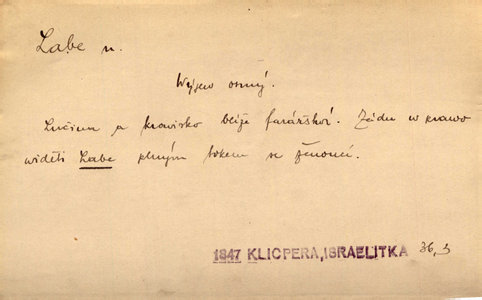 Labe n.
Wýjew osmý.
Lučina a krowisko blíže farářskoі. Zádu w prawo
widěti Labe plným tokem se ženoucí.
1847 KLICPERA, ISRAELITKA 36,3